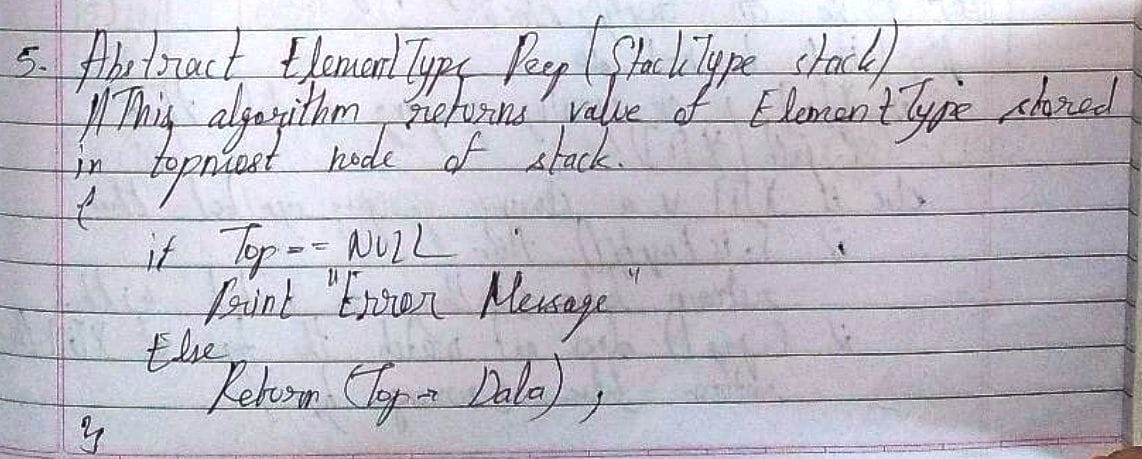 5. Abstract ElementType Peep (StackType stack)
// This algorithm returns value of ElementType stored
in topmost node of stack.
{
if Top == NULL
Print "Error Message"
Else
Return (Top → Data) ;
}